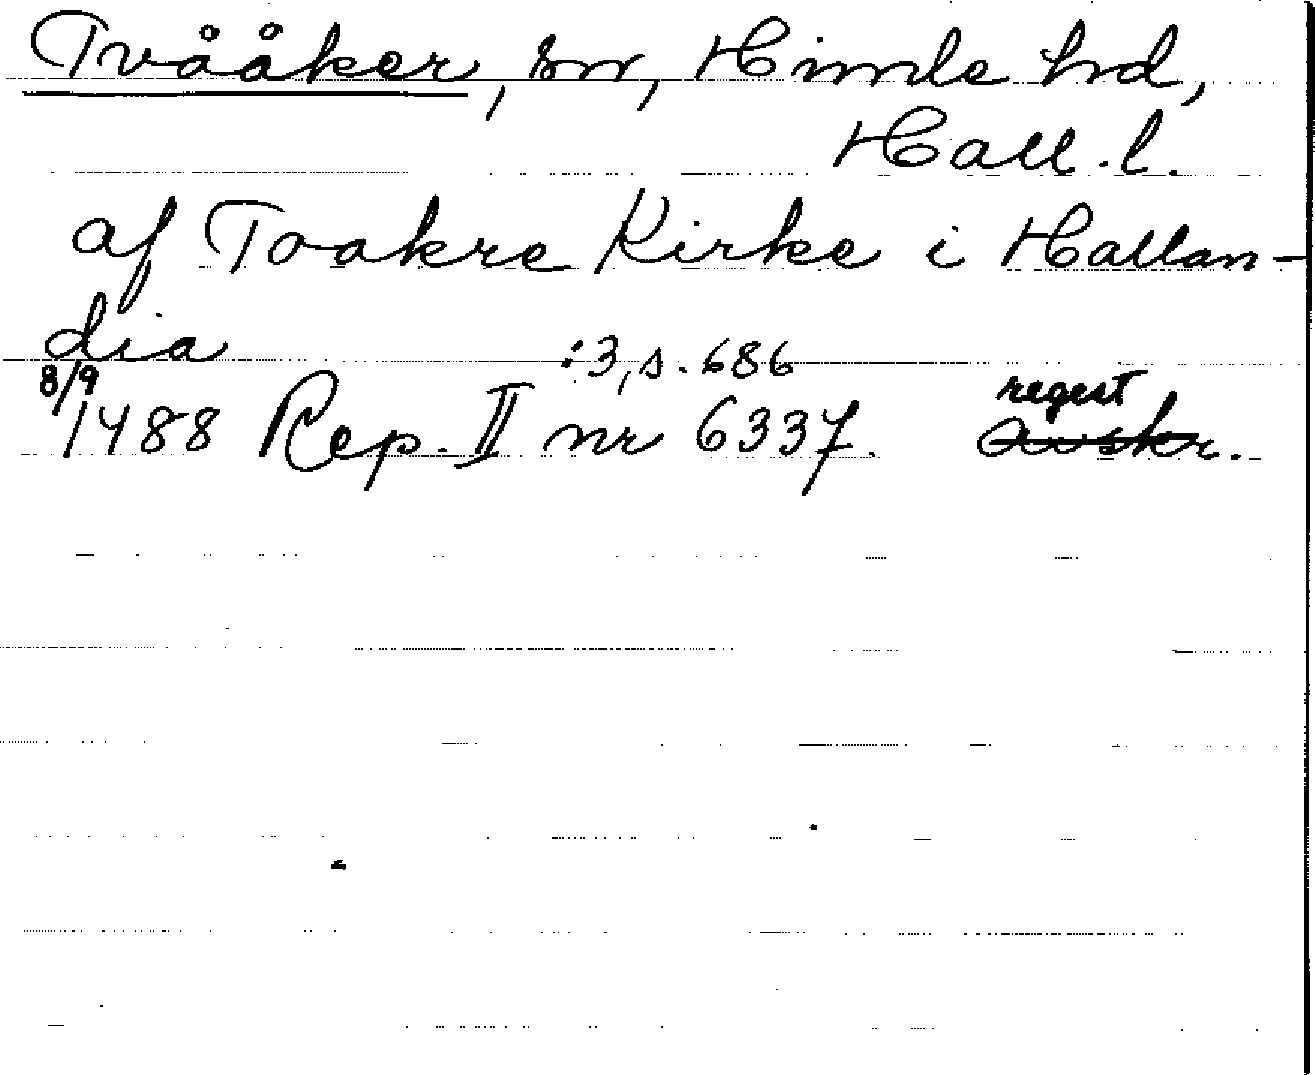 Tvååker, sn, Himle hd,
Hall. l.
af Toakre Kirke i Hallan-
dia :3, s. 686
8/9 1488 Rep. II nr 6337. regest
avskr.